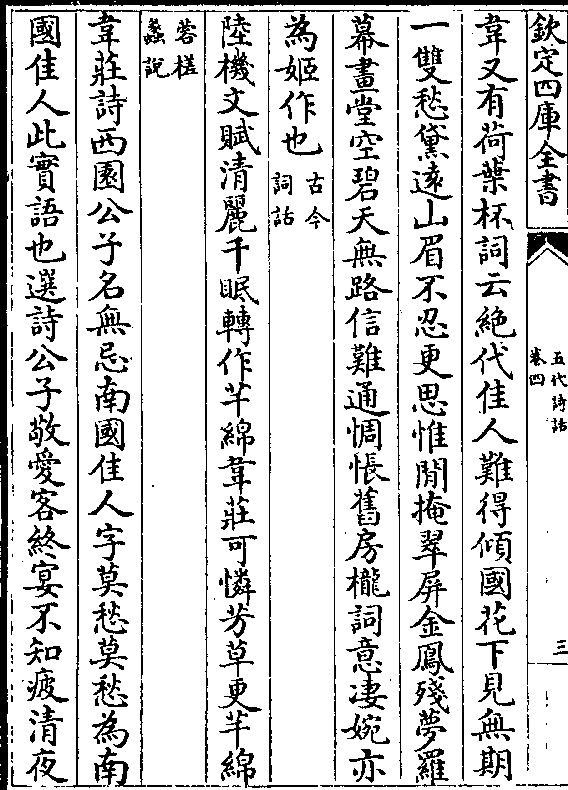 欽定四庫全書
五代詩話
卷四
三
韋又有荷葉杯詞云絶代佳人難得傾國花下見無期
一雙愁黛逺山眉不忍更思惟閒掩翠屏金鳳殘夢羅
幕畫堂空碧天無路信難通惆悵舊房櫳詞意凄婉亦
為姬作也古今
詞話
陸機文賦清麗千眠轉作芊綿韋莊可憐芳草更芊綿
苕槎
蠡說
韋莊詩西園公子名無忌南國佳人字莫愁莫愁為南
國佳人此實語也選詩公子敬愛客終宴不知疲清夜